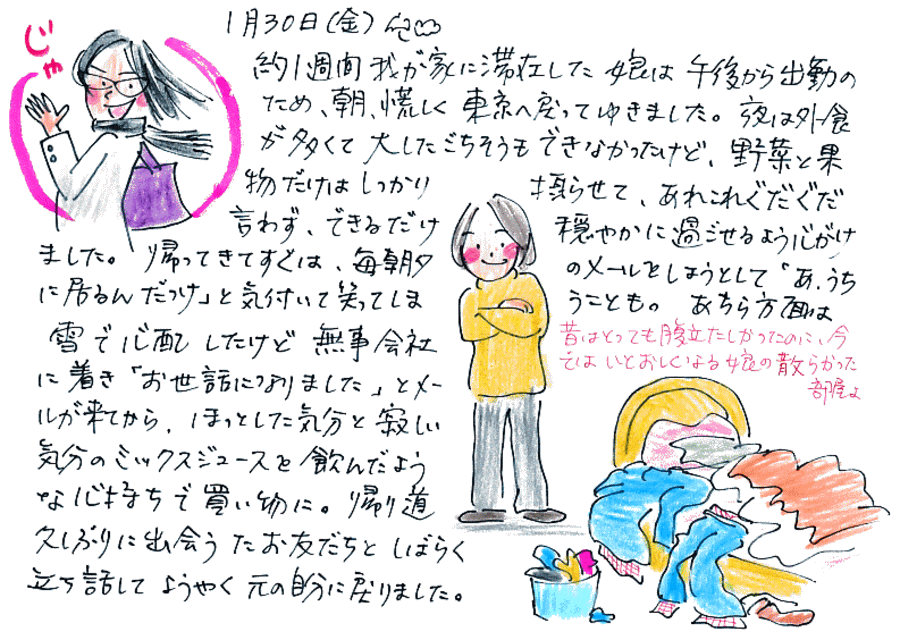 じゃ
1月30日(金)
約1週間我が家に滞在した娘は午後から出勤の
ため、朝、慌しく東京へ戻ってゆきました。夜は外食
が多くて大したごちそうもできなかったけど、野菜と果
物だけはしっかり摂らせて、あれこれぐだぐだ
言わず、できるだけ穏やかに過ごせるよう心がけ
ました。帰ってきてすぐは、毎朝夕のメールをしようとして「あ、うち
に居るんだっけ」と気付いて笑ってしまうことも。あちら方面は
雪で心配したけど無事会社
に着き「お世話になりました」とメー
ルが来てから、ほっとした気分と寂しい
気分のミックスジュースを飲んだよう
な心持ちで買い物に。帰り道
久しぶりに出会うたお友だちとしばらく
立ち話してようやく元の自分に戻りました。
昔はとっても腹立たしかったのに、今
ではいとおしくなる娘の散らかった
部屋よ